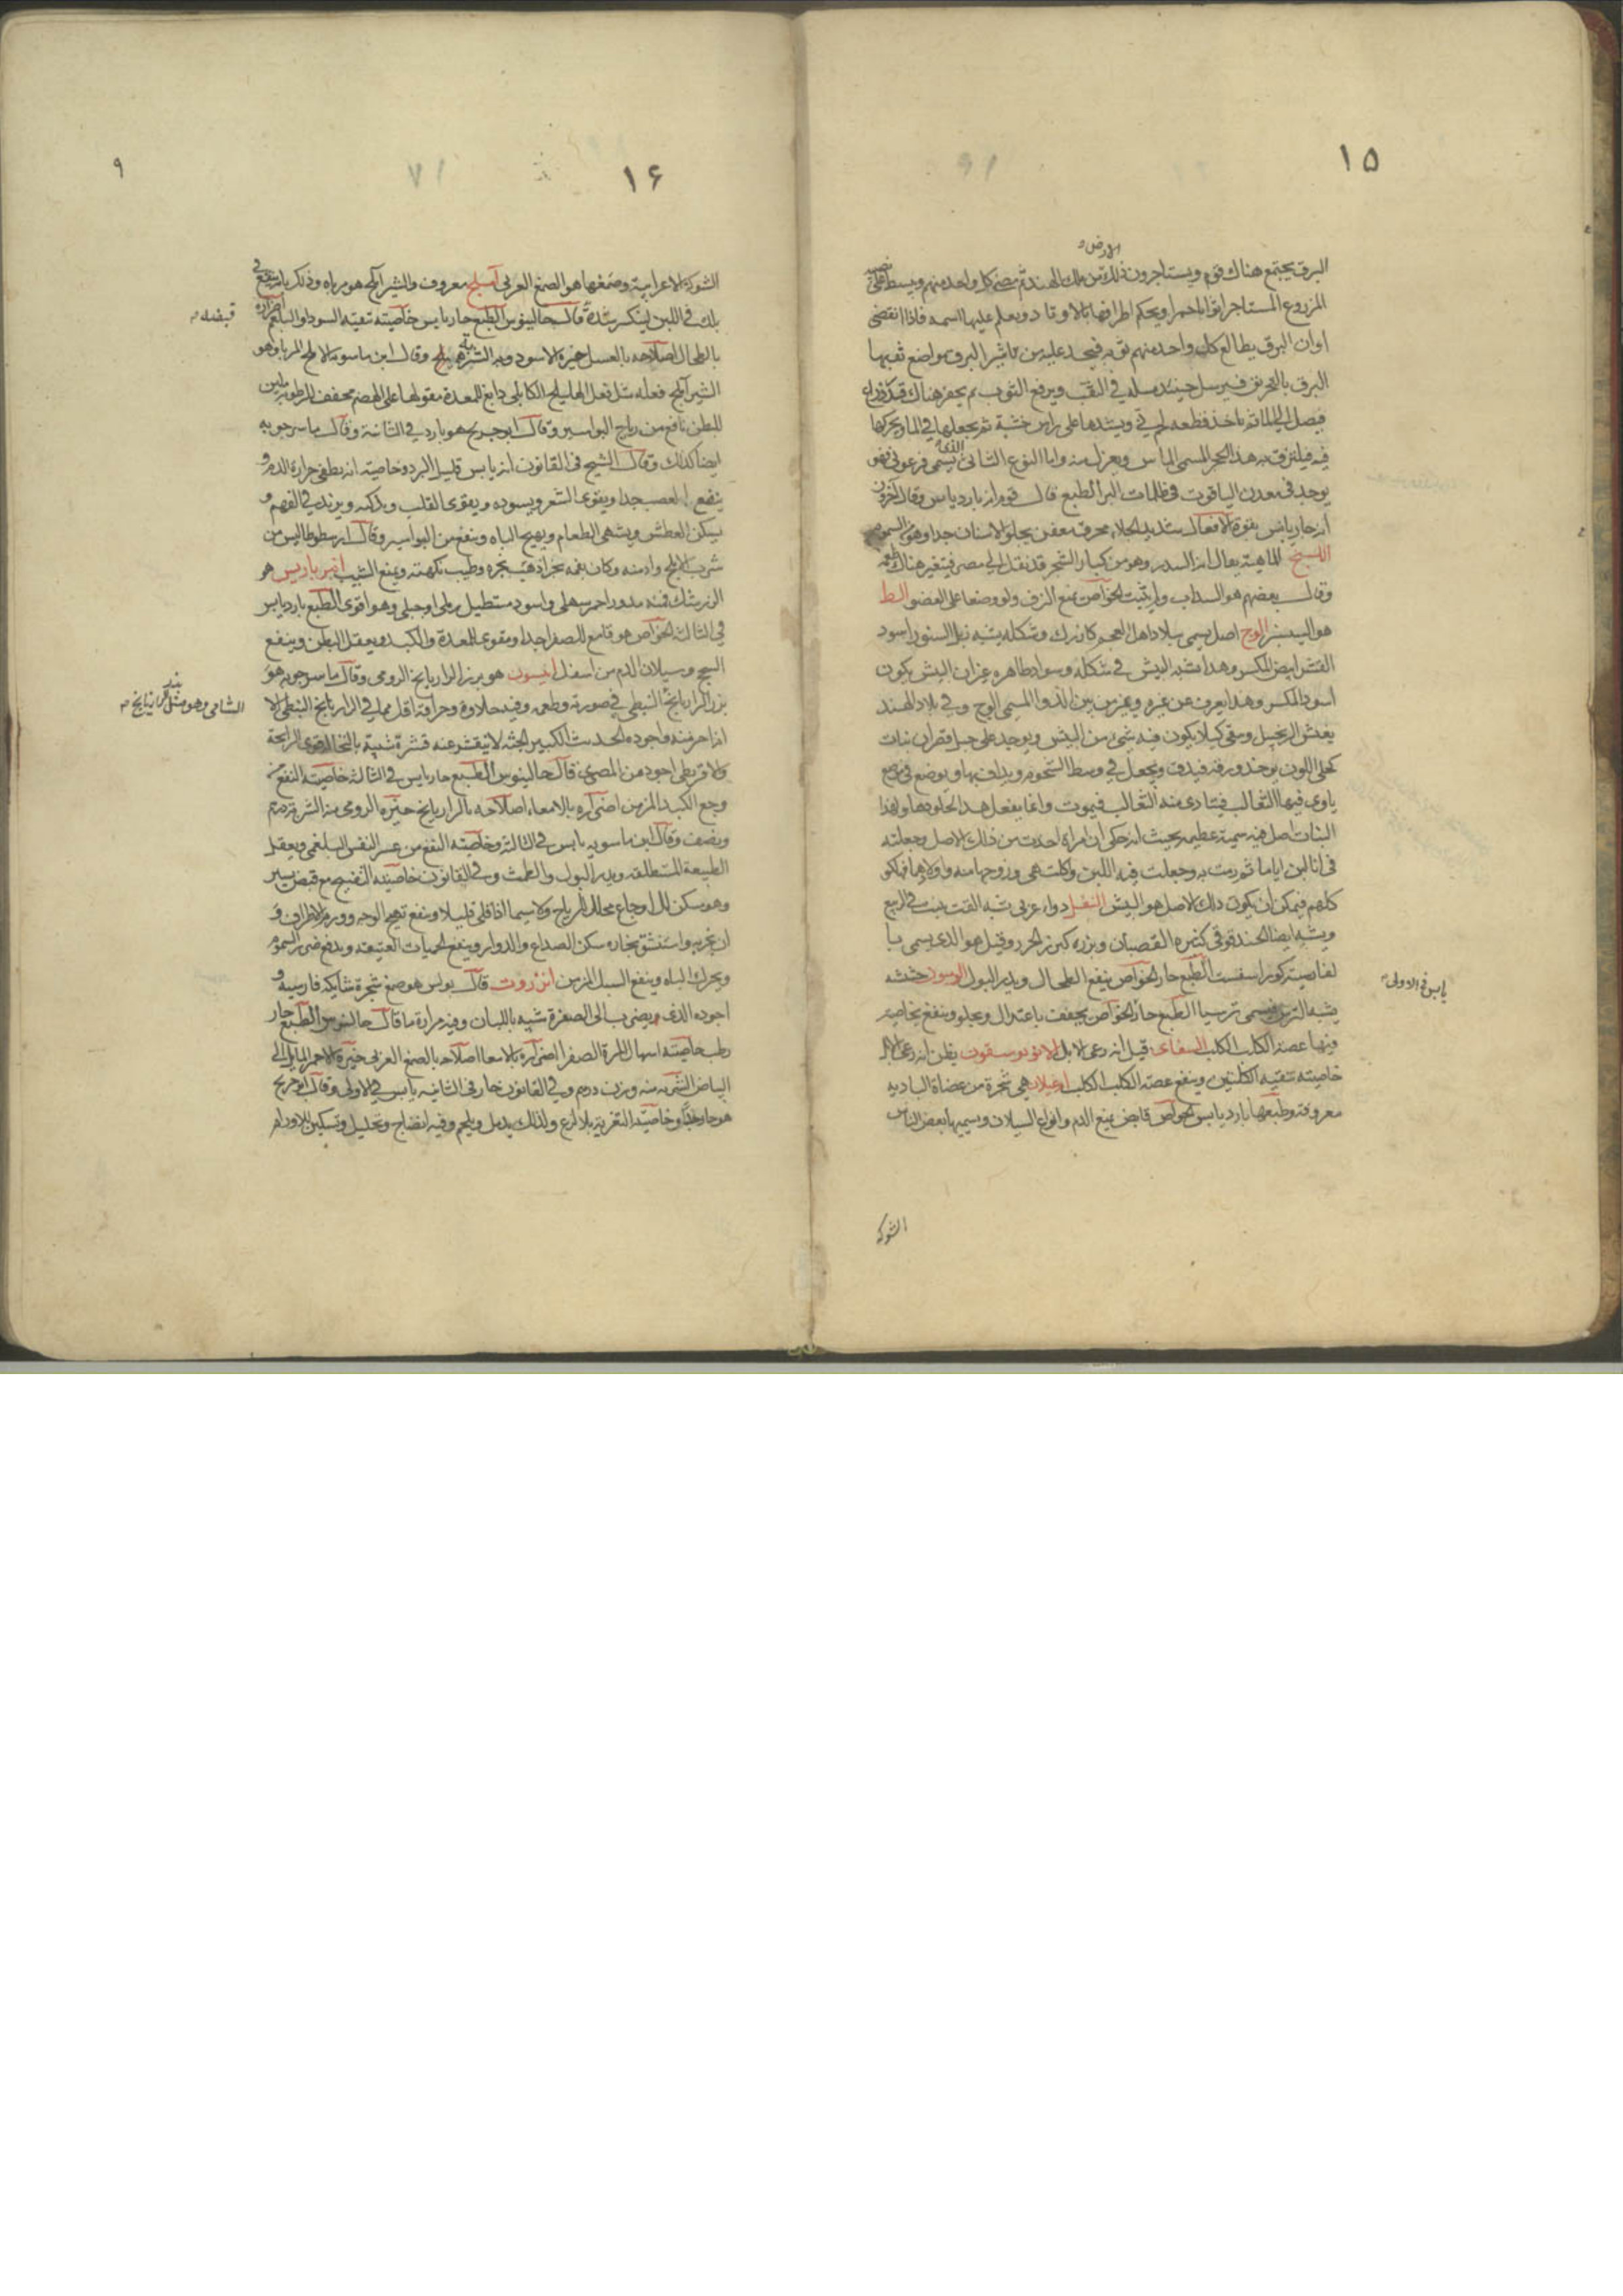 ١٥
الارض
البرق يجتمع هناك قوم ويستاجرون ذلك من ملك الهند ثم كل واحد منهم ويبسط على
المزروع المستاجر اثوابا حمرا ويحكم اطرافها بالاوتاد ويعلم عليها اسمه فاذا انقضى
اوان البرق يطالع كل واحد منهم ثوبه فيجد عليه من تاثير البرق مواضع ثقبها
البرق بالتحريق فيرسل حينئذ مسلة في الثقب ويرفع الثوب ثم يحفر هناك قدر
فيصل الى الماء ثم ياخذ قطعه لحم ني ويشدها على راس خشبة ثم يجعلها في الماء ويحركها
فيه فيلتزق به هذا الحجر المسمى الماس ويعزل منه واما النوع الثانى الذى يسمى فرعونى فهو
يوجد في معدن الياقوت في ظلمات البر الطبع قال قوم انه بارد يابس وقال آخرون
انه حار يابس بقوة الافعال شديد الجلاء محرق معفن يجلو الاسنان جدا وهو من السموم
اللبخ الماهية يقال انه السدر وهو من كبار الشجر قد نقل الى مصر فيتغير هناك طعمه
وقال بعضهم هو السداب ولم يثبت الخواص يمنع النزف ولو وضعا على العضو البط
هو البيش الوج اصل يسمى ببلاد اهل العجم كارنك وشكله يشبه ذيل السنور اسود
القشر ابيض المكسر وهذا يشبه البيش في شكله وسواد ظاهره غير ان البيش يكون
اسود المكسر وهذا يعرف عن غيره ويميز من بين الدوا المسمى الوج وفي بلاد الهند
يغش الزنجبيل وسقى كيلا يكون فيه شيء من البيش ويوجد على جبل قصران نبات
كحلى اللون يوخذ ورقه فيدق ويجعل في وسط الشحوم ويداف بها ويوضع في موضع
ياوى فيها الثعالب فيتادى منه الثعالب فيموت وانما يفعل هذا لجلودها ولهذا
النبات اصل فيه سمية عظيمة بحيث انه حكى ان امراة اخذت من ذلك الاصل وجعلته
في انا لبن اياما ثم رمت به وجعلت فيه اللبن واكلت هى وزوجها منه واولادها فهلكو
كلهم فيمكن ان يكون ذلك الاصل هو البيش النفل دواء عربى شبه القت ينبت في الربيع
ويشبه ايضا الحندقوقى كثيره القصبان وبزره كبزر الجزر وقيل هو الذى يسمى با
لفارسية كوراسفست الطبع حار الخواص ينفع الطحال ويدر البول الوسود خشبه
يشبه الترمس يسمى ترسيا الطبع حار الخواص يجفف باعتدال ويجلو وينفع بخاصية
فيها عضة الكلب الكلب السفاى قيل انه رعى الابل الانو بوسقون يظن انه رعى الابل
خاصيته تنقية الكليتين وينفع عضة الكلب الكلب ام غيلان هى شجرة من عضاة البادية
معروفة وطبعها بارد يابس الخواص قابض يمنع الدم وانواع السيلان ويسميها بعض الناس
يابس في الاولى
الشوكه
١۶
٩
الشوكة الاعرابية وصمغها هو الصمغ العربى املج معروف والشير املج هو مرباه وذلك بانه ينقع في
بلك في اللبن لينكسر شدة قال جالينوس الطبع حار يابس خاصيته تنقية السودا والبلغم اضراره
بالطحال اصلاحه بالعسل خيره الاسود وبدله الشربة وقال ابن ماسويه الاملج المربا وهو
الشير املج فعله مثل فعل الهليلج الكابلى دابغ للمعدة مقو لها على الهضم مجفف للرطوبة ملين
للبطن نافع من رياح البواسير وقال ابو جريج هو بارد في الثانية وقال ماسرجويه
ايضا كذلك وقال الشيخ في القانون انه يابس قليل البرد وخاصيته انه يطفى حرارة الدم و
ينفع العصب جدا ويقوى الشعر ويسوده ويقوى القلب ويذكيه ويزيد في الفهم و
يسكن العطش ويشهى الطعام ويهيج الباه وينفع من البواسير وقال ارسطوطاليس من
شرب الاملج وادمنه وكان بفمه بخر اذهب بخره وطيب نكهته ويمنع الشيب انبر باريس هو
الزرشك فمنه مدور احمر سهلى واسود مستطيل رملى او جبلى وهو اقوى الطبع بارد يابس
في الثالثة الخواص هو قامع للصفرا جدا ومقوى للمعدة والكبد ويعقل البطن وينفع
السحج وسيلان الدم من اسفل انيسون هو بزر الرازيانج الرومى وقال ماسرجويه هو
بزر الرازيانج النبطى في صورته وطعمه وفيه حلاوة وحرافة اقل مما في الرازيانج النبطى الا
انه احر منه واجوده الحديث الكبير الجثه لا يتقشر عنه قشرة شبيهة بالنخالة قوى الرائحة
والاقريطى اجود من المصرى قال جالينوس الطبع حار يابس في الثالثة خاصيته النفع من
وجع الكبد المزمن اضراره بالامعاء اصلاحه بالرازيانج خيره الرومى منه الشربة درهم
ونصف وقال ابن ماسويه يابس في الثالثة وخاصيته النفع من عسر النفس البلغمى ويعقل
الطبيعة المستطلقة ويدر البول والطمث وفي القانون خاصيته التفتيح مع قبض يسير
وهو مسكن للاوجاع محلل للرياح ولا سيما اذا قلى قليلا وينفع تهيج الوجه وورم الاطراف و
ان تبخر به واستنشق بخاره سكن الصداع والدوار وينفع الحميات العتيقة ويدفع ضرر السموم
ويحرك الباه وينفع السبل المزمن انزروت قال بولس هو صمغ شجرة شايكة فارسية و
اجوده الذى يضرب الى الصفرة شبيه باللبان وفيه مرارة ما قال جالينوس الطبع حار
رطب خاصيته اسهال المرة الصفرا اضراره بالامعا اصلاحه بالصمغ العربى خيره الاحمر المايل الى
البياض الشربه منه وزن درهم وفي القانون حار في الثانيه يابس في الاولى وقال ابو جريج
هو حار جدا وخاصيته التغرية بلا لذع ولذلك يدمل ويلحم وفيه انضاج وتحليل وتسكين للاورام
الشامى وهو مثل بزر الرازيانج